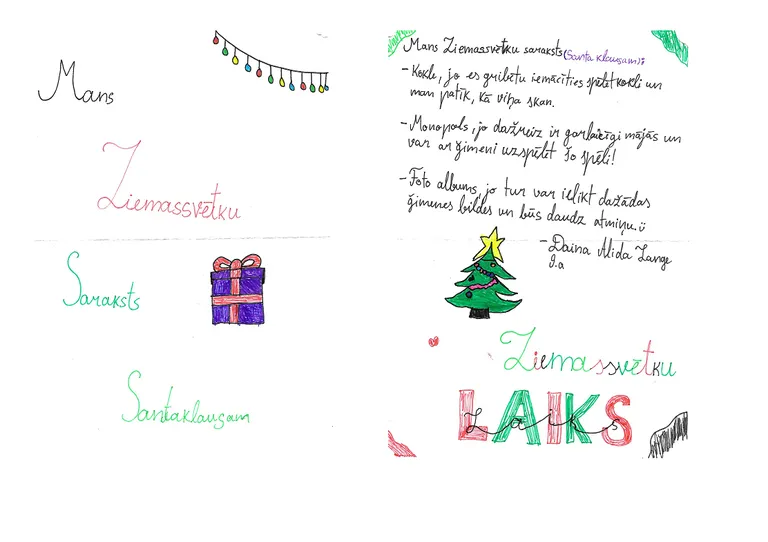 Mans
Ziemassvētku
Saraksts
Santaklausam
Mans Ziemassvētku saraksts (Santa klausam) :
- Kokle, jo es gribētu iemācīties spēlēt kokli un
man patīk, kā viņa skan.
- Monopols, jo dažreiz ir garlaicīgi mājās un
var ar ģimeni uzspēlēt šo spēli!
- Foto albums, jo tur var ielikt dažādas
ģimenes bildes un būs daudz atmiņu.
- Daina Alida Lange
9.a
Ziemassvētku
LAIKS
Laiks